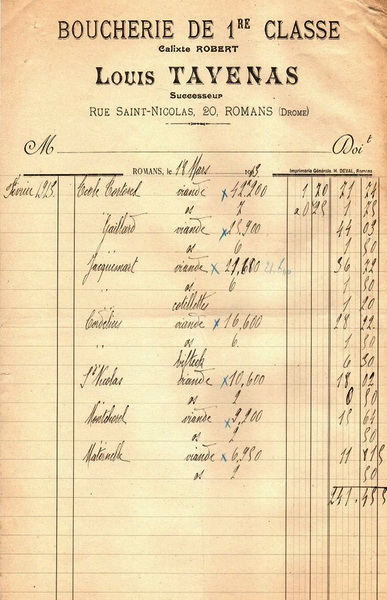 BOUCHERIE DE 1RE CLASSE
Calixte ROBERT
LOUIS TAVENAS
Successeur
RUE SAINT-NICOLAS, 20, ROMANS (DRÔME)
M Doit
ROMANS, le 18 Mars 1913 Imprimerie Générale H. DEVAL, Romans
Février 1913. Ecole viande x 42,200 1 20 51 24
os 7 a 0 25 1 75
Gaillard viande x 25,900 44 03
os 6 1 50
Jacquemart viande x 21,680 36 22
os 6 1 50
" côtelettes 1 20
Cordeliers viande x 16,600 28 22
" os 6 1 50
bifteck 6 30
St Nicolas viande x 10,600 18 02
os 2 0 50
viande x 9,200 15 64
os 2 50
Maternelle viande x 6,950 11
os 2 50
241.45